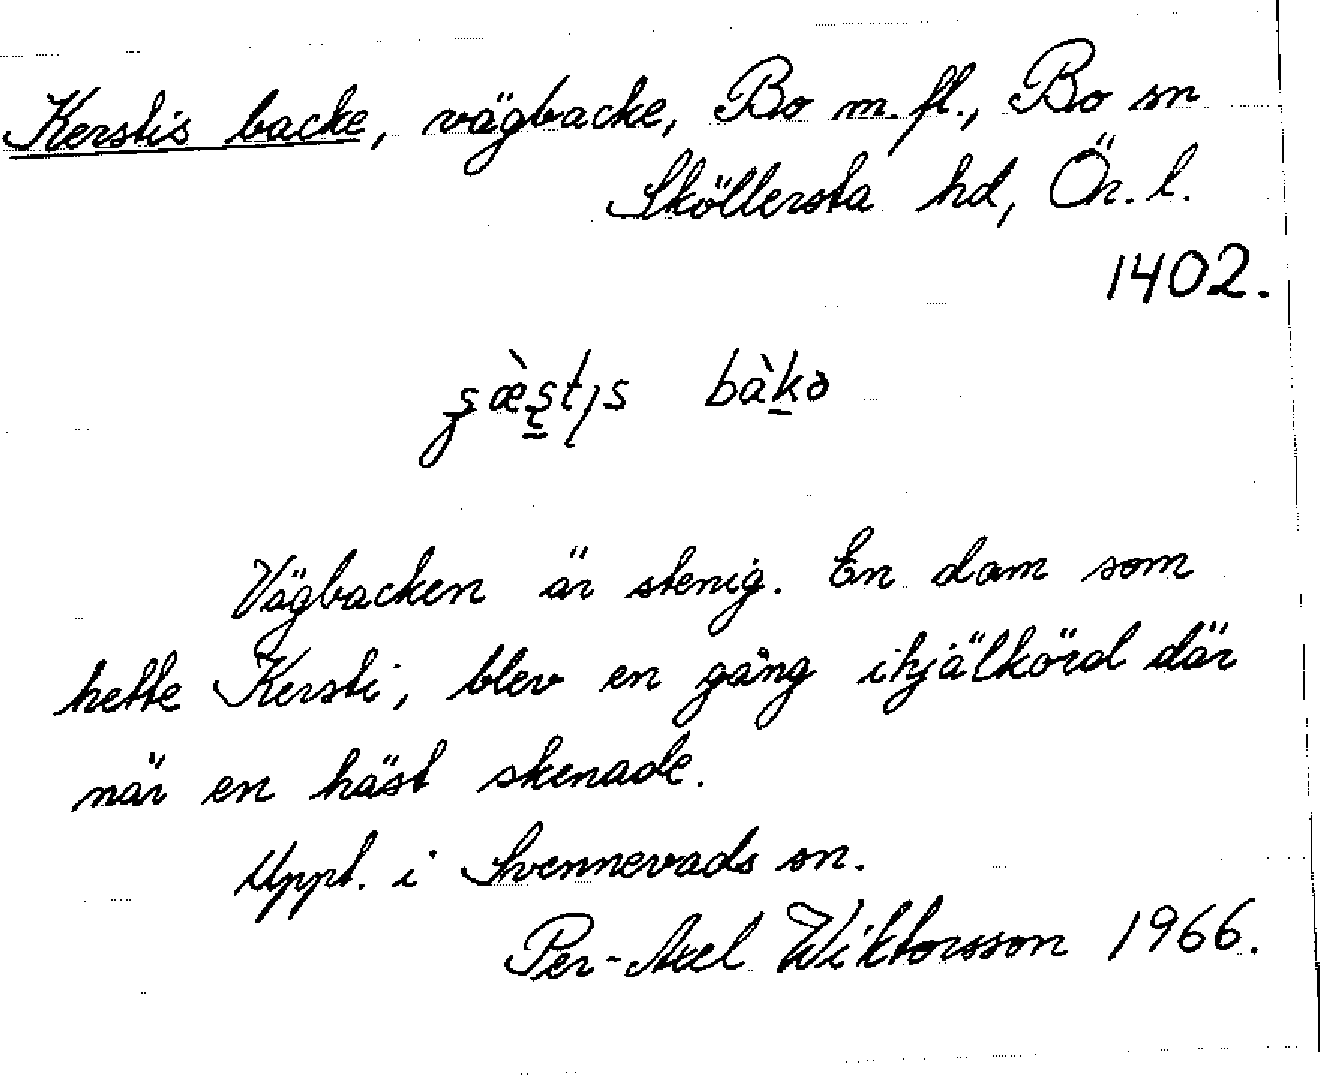 Kerstis backe, vägbacke, Bo m.fl., Bo sn
Sköllersta hd, Ör. l.
1402.
bàkə
Vägbacken är stenig. En dam som
hette Kersti, blev en gång ihjälkörd där
när en häst skenade.
Uppt. i Svennevads sn.
Per-Axel Wiktorsson 1966.